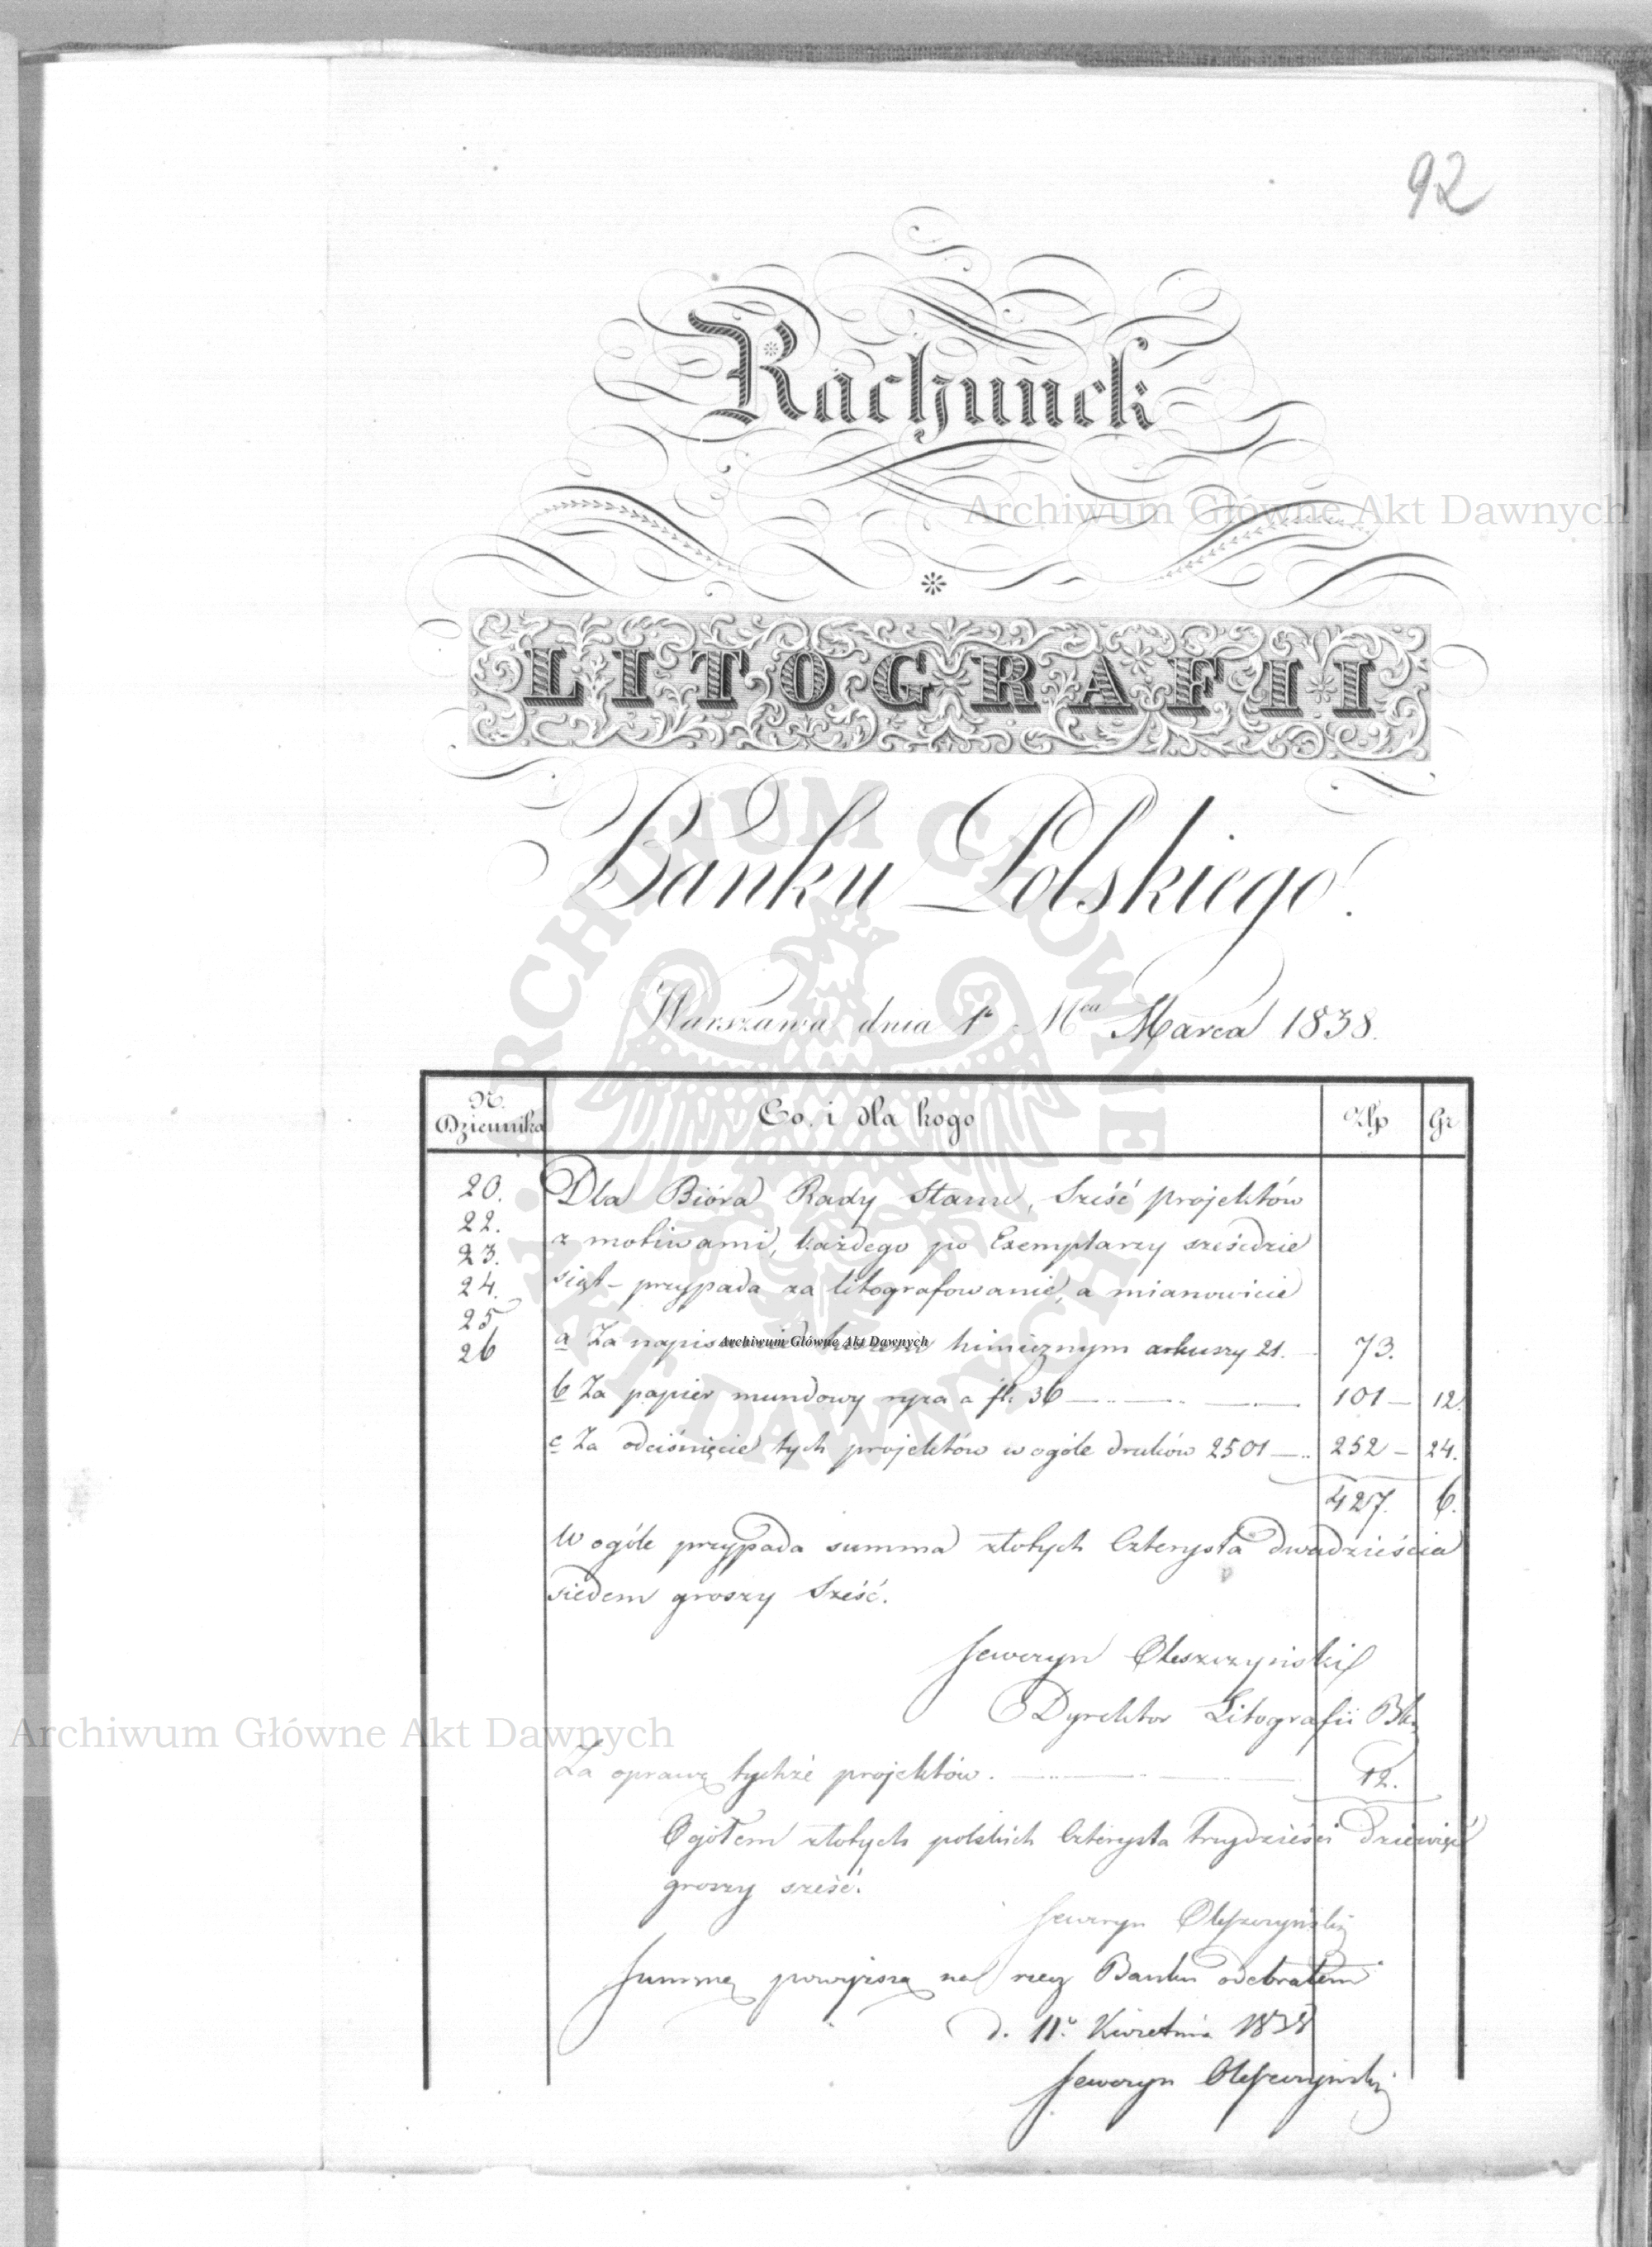 92
Rachunek
LITOGRAFII
Banku Polskiego.
Warszawa dnia 1º Mca Marca 1838.
N. Dziennika Co i dla kogo Złp Gr
20. Dla Bióra Rady Stanu, Sześć projektów
22. z motiwami, każdego po Exemplarzy sześćdzie
23. siąt – przypada za litografowanie, a mianowicie
24.
25
26 a Za napisanie himicznym arkuszy 21. 73.
b Za papier mundowy ryza a fl. 36 101 – 12.
c Za odciśnięcie tych projektów w ogóle druków 2501 252 – 24.
427. 6.
W ogóle przypada summa złotych Czterysta dwadzieścia
siedem groszy Sześć.
Seweryn Oleszczyński
Dyrektor Litografii Bku
Za oprawę tychże projektów. 12.
Ogółem złotych polskich Czterysta trzydzieści dziewięć
groszy sześć.
Seweryn Oleszczyński
Summę powyższą na rzecz Banku odebrałem
d. 11º Kwietnia 1838
Seweryn Oleszczyński
Archiwum Główne Akt Dawnych
Archiwum Główne Akt Dawnych
Archiwum Główne Akt Dawnych
ARCHIWUM GŁÓWNE AKT DAWNYCH